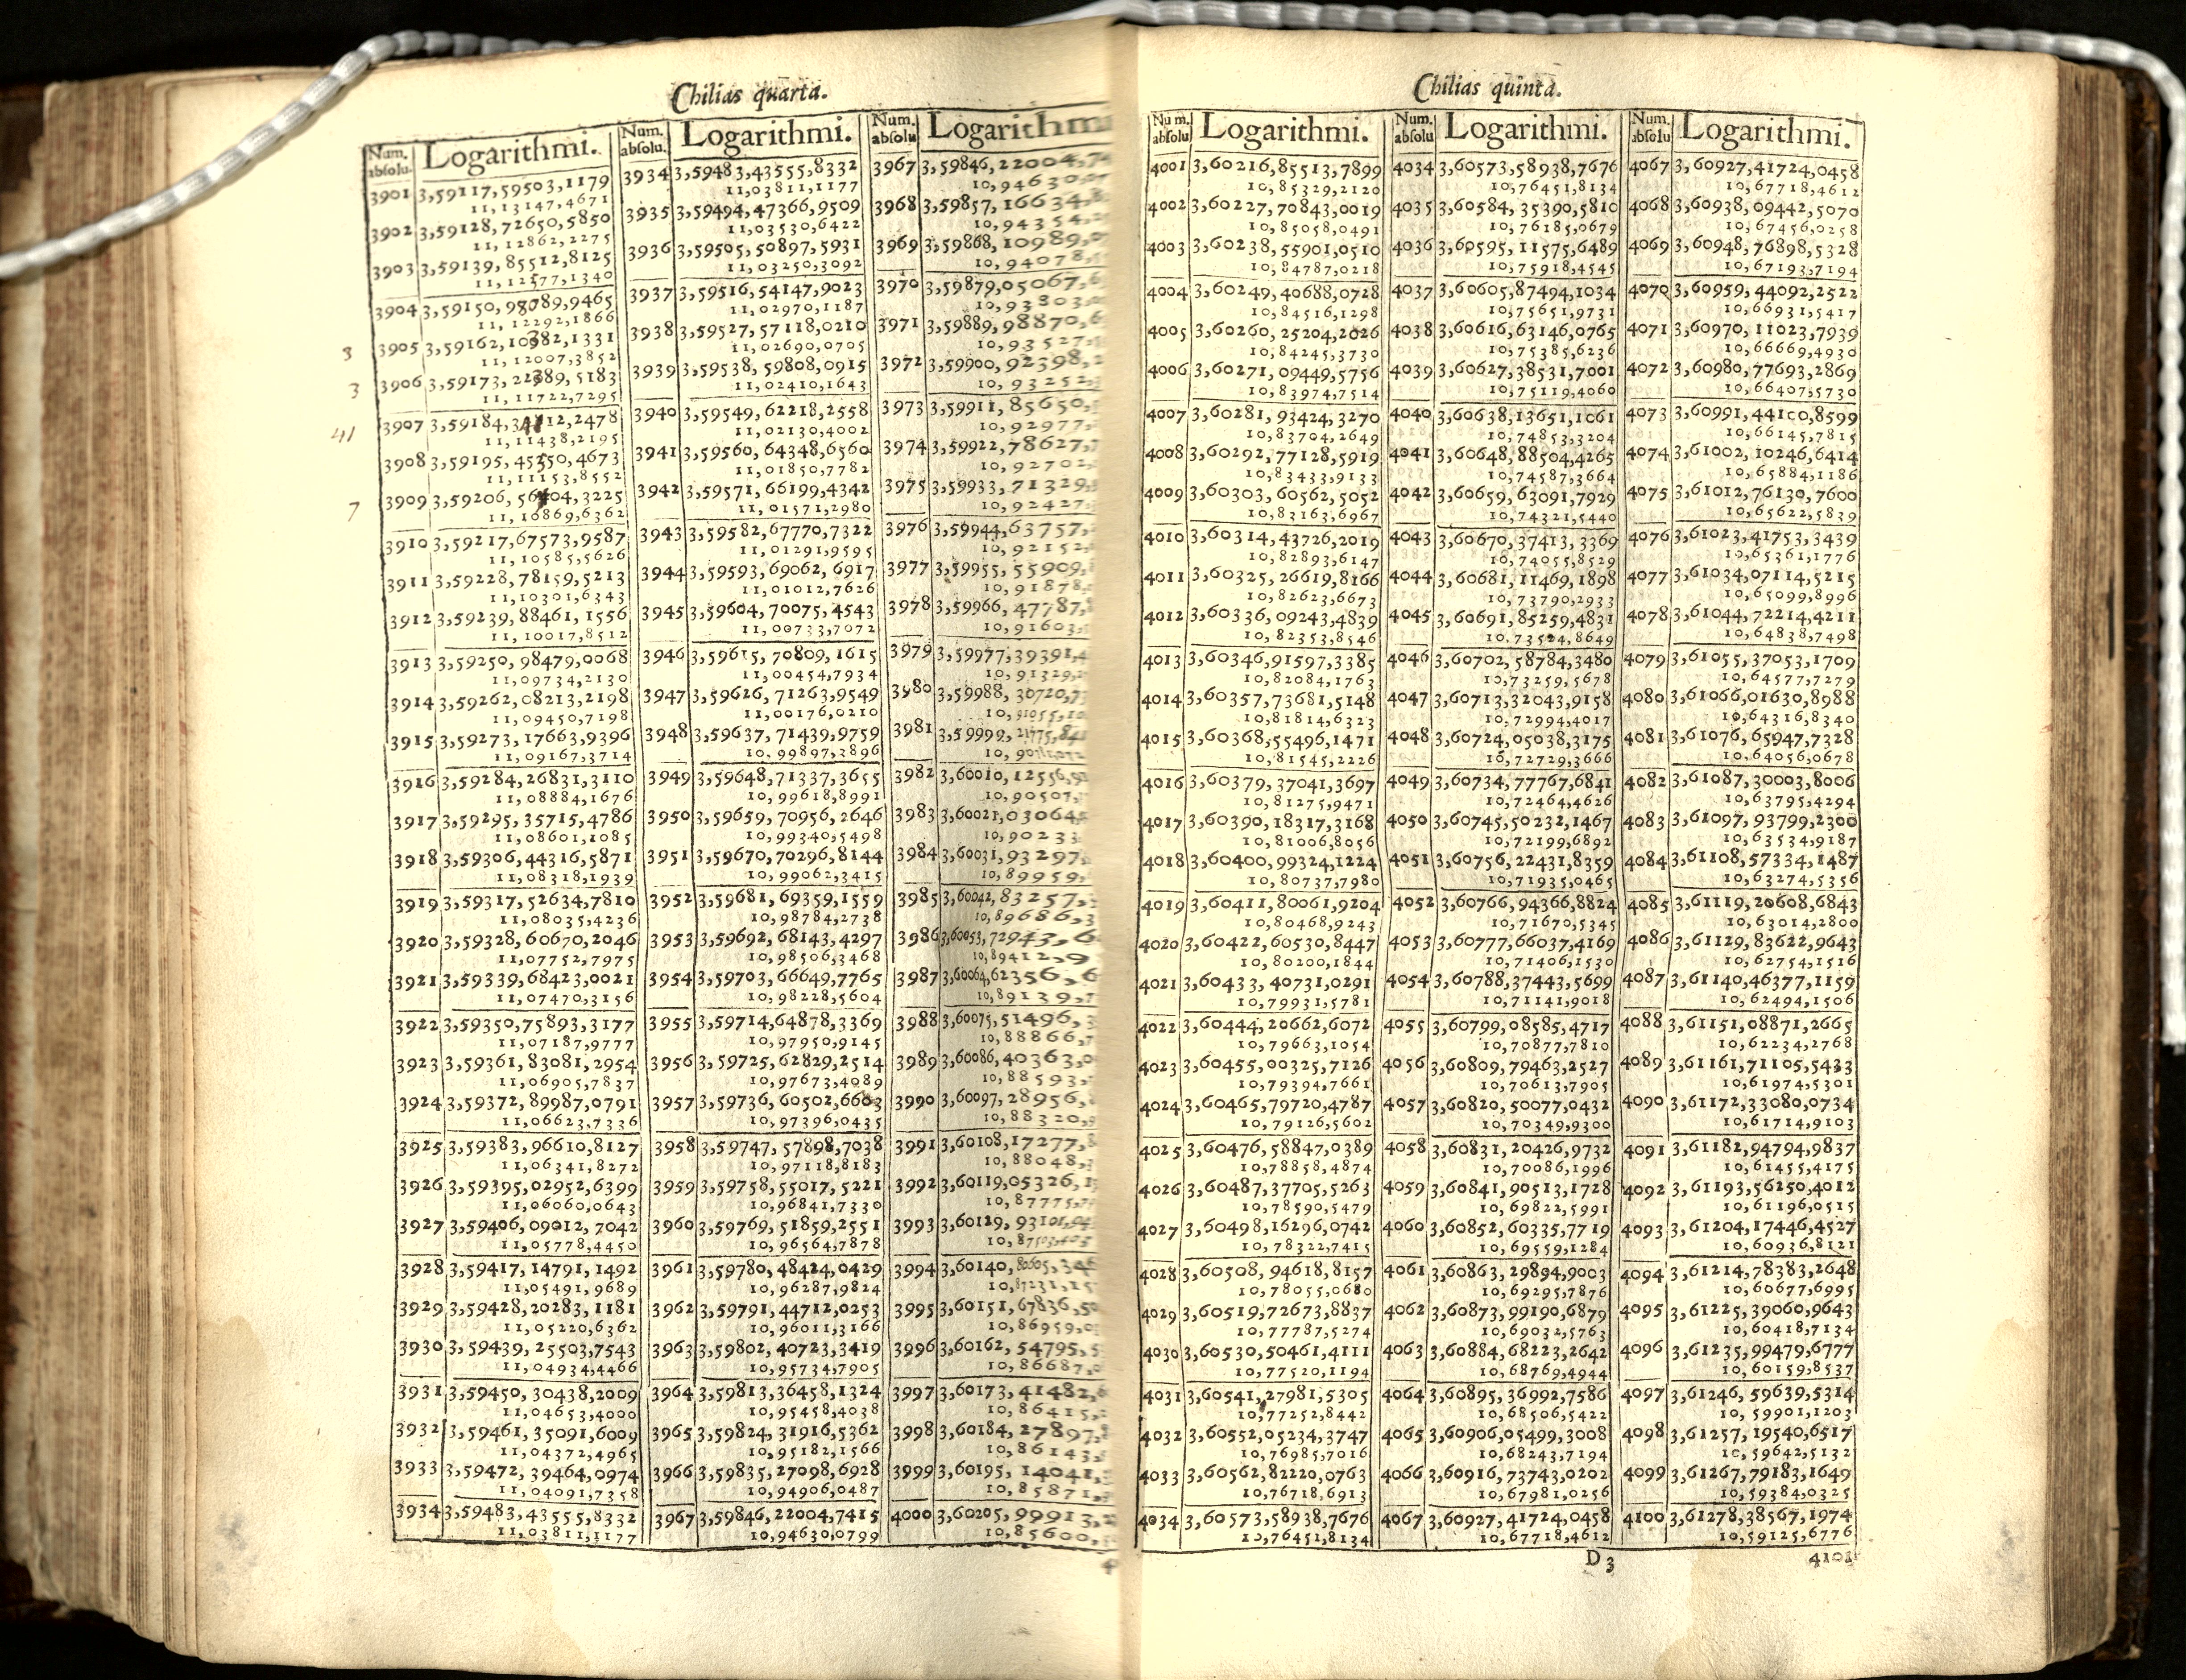 Chilias quarta.
Num. absolu. Logarithmi.
3901 3,59117,59503,1179
11,13147,4671
3902 3,59128,72650,5850
11,12862,2275
3903 3,59139,85512,8125
11,12577,1340
3904 3,59150,98089,9465
11,12292,1866
3 3905 3,59162,10382,1331
11,12007,3852
3 3906 3,59173,22389,5183
11,11722,7295
41 3907 3,59184,34112,2478
11,11438,2195
3908 3,59195,45550,4673
11,11153,8552
7 3909 3,59206,56704,3225
11,10869,6362
3910 3,59217,67573,9587
11,10585,5626
3911 3,59228,78159,5213
11,10301,6343
3912 3,59239,88461,1556
11,10017,8512
3913 3,59250,98479,0068
11,09734,2130
3914 3,59262,08213,2198
11,09450,7198
3915 3,59273,17663,9396
11,09167,3714
3916 3,59284,26831,3110
11,08884,1676
3917 3,59295,35715,4786
11,08601,1085
3918 3,59306,44316,5871
11,08318,1939
3919 3,59317,52634,7810
11,08035,4236
3920 3,59328,60670,2046
11,07752,7975
3921 3,59339,68423,0021
11,07470,3156
3922 3,59350,75893,3177
11,07187,9777
3923 3,59361,83081,2954
11,06905,7837
3924 3,59372,89987,0791
11,06623,7336
3925 3,59383,96610,8127
11,06341,8272
3926 3,59395,02952,6399
11,06060,0643
3927 3,59406,09012,7042
11,05778,4450
3928 3,59417,14791,1492
11,05491,9689
3929 3,59428,20283,1181
11,05220,6362
3930 3,59439,25503,7543
11,04934,4466
3931 3,59450,30438,2009
11,04653,4000
3932 3,59461,35091,6009
11,04372,4965
3933 3,59472,39464,0974
11,04091,7358
3934 3,59483,43555,8332
11,03811,1177
Num. absolu. Logarithmi.
3934 3,59483,43555,8332
11,03811,1177
3935 3,59494,47366,9509
11,03530,6422
3936 3,59505,50897,5931
11,03250,3092
3937 3,59516,54147,9023
11,02970,1187
3938 3,59527,57118,0210
11,02690,0705
3939 3,59538,59808,0915
11,02410,1643
3940 3,59549,62218,2558
11,02130,4002
3941 3,59560,64348,6560
11,01850,7782
3942 3,59571,66199,4342
11,01571,2980
3943 3,59582,67770,7322
11,01291,9595
3944 3,59593,69062,6917
11,01012,7626
3945 3,59604,70075,4543
11,00733,7072
3946 3,59615,70809,1615
11,00454,7934
3947 3,59626,71263,9549
11,00176,0210
3948 3,59637,71439,9759
10,99897,3896
3949 3,59648,71337,3655
10,99618,8991
3950 3,59659,70956,2646
10,99340,5498
3951 3,59670,70296,8144
10,99062,3415
3952 3,59681,69359,1559
10,98784,2738
3953 3,59692,68143,4297
10,98506,3468
3954 3,59703,66649,7765
10,98228,5604
3955 3,59714,64878,3369
10,97950,9145
3956 3,59725,62829,2514
10,97673,4089
3957 3,59736,60502,6603
10,97396,0435
3958 3,59747,57898,7038
10,97118,8183
3959 3,59758,55017,5221
10,96841,7330
3960 3,59769,51859,2551
10,96564,7878
3961 3,59780,48424,0429
10,96287,9824
3962 3,59791,44712,0253
10,96011,3166
3963 3,59802,40723,3419
10,95734,7905
3964 3,59813,36458,1324
10,95458,4038
3965 3,59824,31916,5362
10,95182,1566
3966 3,59835,27098,6928
10,94906,0487
3967 3,59846,22004,7415
10,94630,0799
Num. absolu Logarithmi
3967 3,59846,22004,
10,94630,
3968 3,59857,16634,
10,94354,
3969 3,59868,10989,
10,94078,
3970 3,59879,05067,
10,93803,
3971 3,59889,98870,
10,93527,
3972 3,59900,92398,
10,93252,
3973 3,59911,85650,
10,92977,
3974 3,59922,78627,
10,92702,
3975 3,59933,71329,
10,92427,
3976 3,59944,63757,
10,92152,
3977 3,59955,55909,
10,91878,
3978 3,59966,47787,
10,91603,
3979 3,59977,39391,
10,91329,
3980 3,59988,30720,
10,91055,
3981 3,59999,21775,
3982 3,60010,12556,
10,90507,
3983 3,60021,03064,
10,90233
3984 3,60031,93297,
10,89959,
3985 3,60042,83257,
10,89686,
3986 3,60053,72943,
10,89412,
3987 3,60064,62356,
10,89139,
3988 3,60075,51496,
10,88866,
3989 3,60086,40363,
10,88593,
3990 3,60097,28956,
10,88320,
3991 3,60108,17277,
10,88048,
3992 3,60119,05326,
10,87775,
3993 3,60129,93101,
10,87503,
3994 3,60140,80605,
10,87231,
3995 3,60151,67836,
10,86959,
3996 3,60162,54795,
10,86687,
3997 3,60173,41482,
10,86415,
3998 3,60184,27897,
10,86143,
3999 3,60195,14041,
10,85871,
4000 3,60205,99913,
10,85600,
Chilias quinta.
Num. absolu Logarithmi.
4001 3,60216,85513,7899
10,85329,2120
4002 3,60227,70843,0019
10,85058,0491
4003 3,60238,55901,0510
10,84787,0218
4004 3,60249,40688,0728
10,84516,1298
4005 3,60260,25204,2026
10,84245,3730
4006 3,60271,09449,5756
10,83974,7514
4007 3,60281,93424,3270
10,83704,2649
4008 3,60292,77128,5919
10,83433,9133
4009 3,60303,60562,5052
10,83163,6967
4010 3,60314,43726,2019
10,82893,6147
4011 3,60325,26619,8166
10,82623,6673
4012 3,60336,09243,4839
10,82353,8546
4013 3,60346,91597,3385
10,82084,1763
4014 3,60357,73681,5148
10,81814,6323
4015 3,60368,55496,1471
10,81545,2226
4016 3,60379,37041,3697
10,81275,9471
4017 3,60390,18317,3168
10,81006,8056
4018 3,60400,99324,1224
10,80737,7980
4019 3,60411,80061,9204
10,80468,9243
4020 3,60422,60530,8447
10,80200,1844
4021 3,60433,40731,0291
10,79931,5781
4022 3,60444,20662,6072
10,79663,1054
4023 3,60455,00325,7126
10,79394,7661
4024 3,60465,79720,4787
10,79126,5602
4025 3,60476,58847,0389
10,78858,4874
4026 3,60487,37705,5263
10,78590,5479
4027 3,60498,16296,0742
10,78322,7415
4028 3,60508,94618,8157
10,78055,0680
4029 3,60519,72673,8837
10,77787,5274
4030 3,60530,50461,4111
10,77520,1194
4031 3,60541,27981,5305
10,77252,8442
4032 3,60552,05234,3747
10,76985,7016
4033 3,60562,82220,0763
10,76718,6913
4034 3,60573,58938,7676
10,76451,8134
Num. absolu Logarithmi.
4034 3,60573,58938,7676
10,76451,8134
4035 3,60584,35390,5810
10,76185,0679
4036 3,60595,11575,6489
10,75918,4545
4037 3,60605,87494,1034
10,75651,9731
4038 3,60616,63146,0765
10,75385,6236
4039 3,60627,38531,7001
10,75119,4060
4040 3,60638,13651,1061
10,74853,3204
4041 3,60648,88504,4265
10,74587,3664
4042 3,60659,63091,7929
10,74321,5440
4043 3,60670,37413,3369
10,74055,8529
4044 3,60681,11469,1898
10,73790,2933
4045 3,60691,85259,4831
10,73524,8649
4046 3,60702,58784,3480
10,73259,5678
4047 3,60713,32043,9158
10,72994,4017
4048 3,60724,05038,3175
10,72729,3666
4049 3,60734,77767,6841
10,72464,4626
4050 3,60745,50232,1467
10,72199,6892
4051 3,60756,22431,8359
10,71935,0465
4052 3,60766,94366,8824
10,71670,5345
4053 3,60777,66037,4169
10,71406,1530
4054 3,60788,37443,5699
10,71141,9018
4055 3,60799,08585,4717
10,70877,7810
4056 3,60809,79463,2527
10,70613,7905
4057 3,60820,50077,0432
10,70349,9300
4058 3,60831,20426,9732
10,70086,1996
4059 3,60841,90513,1728
10,69822,5991
4060 3,60852,60335,7719
10,69559,1284
4061 3,60863,29894,9003
10,69295,7876
4062 3,60873,99190,6879
10,69032,5763
4063 3,60884,68223,2642
10,68769,4944
4064 3,60895,36992,7586
10,68506,5422
4065 3,60906,05499,3008
10,68243,7194
4066 3,60916,73743,0202
10,67981,0256
4067 3,60927,41724,0458
10,67718,4612
Num. absolu Logarithmi.
4067 3,60927,41724,0458
10,67718,4612
4068 3,60938,09442,5070
10,67456,0258
4069 3,60948,76898,5328
10,67193,7194
4070 3,60959,44092,2522
10,66931,5417
4071 3,60970,11023,7939
10,66669,4930
4072 3,60980,77693,2869
10,66407,5730
4073 3,60991,44100,8599
10,66145,7815
4074 3,61002,10246,6414
10,65884,1186
4075 3,61012,76130,7600
10,65622,5839
4076 3,61023,41753,3439
10,65361,1776
4077 3,61034,07114,5215
10,65099,8996
4078 3,61044,72214,4211
10,64838,7498
4079 3,61055,37053,1709
10,64577,7279
4080 3,61066,01630,8988
10,64316,8340
4081 3,61076,65947,7328
10,64056,0678
4082 3,61087,30003,8006
10,63795,4294
4083 3,61097,93799,2300
10,63534,9187
4084 3,61108,57334,1487
10,63274,5356
4085 3,61119,20608,6843
10,63014,2800
4086 3,61129,83622,9643
10,62754,1516
4087 3,61140,46377,1159
10,62494,1506
4088 3,61151,08871,2665
10,62234,2768
4089 3,61161,71105,5433
10,61974,5301
4090 3,61172,33080,0734
10,61714,9103
4091 3,61182,94794,9837
10,61455,4175
4092 3,61193,56250,4012
10,61196,0515
4093 3,61204,17446,4527
10,60936,8121
4094 3,61214,78383,2648
10,60677,6995
4095 3,61225,39060,9643
10,60418,7134
4096 3,61235,99479,6777
10,60159,8537
4097 3,61246,59639,5314
10,59901,1203
4098 3,61257,19540,6517
10,59642,5132
4099 3,61267,79183,1649
10,59384,0325
4100 3,61278,38567,1974
10,59125,6776
D 3 4101